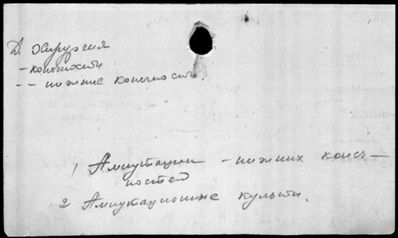 Д. Хирургия
- конечности
-- нижние конечности.
1 Ампутации - нижних конеч-
ностей
2 Ампутационные культи.